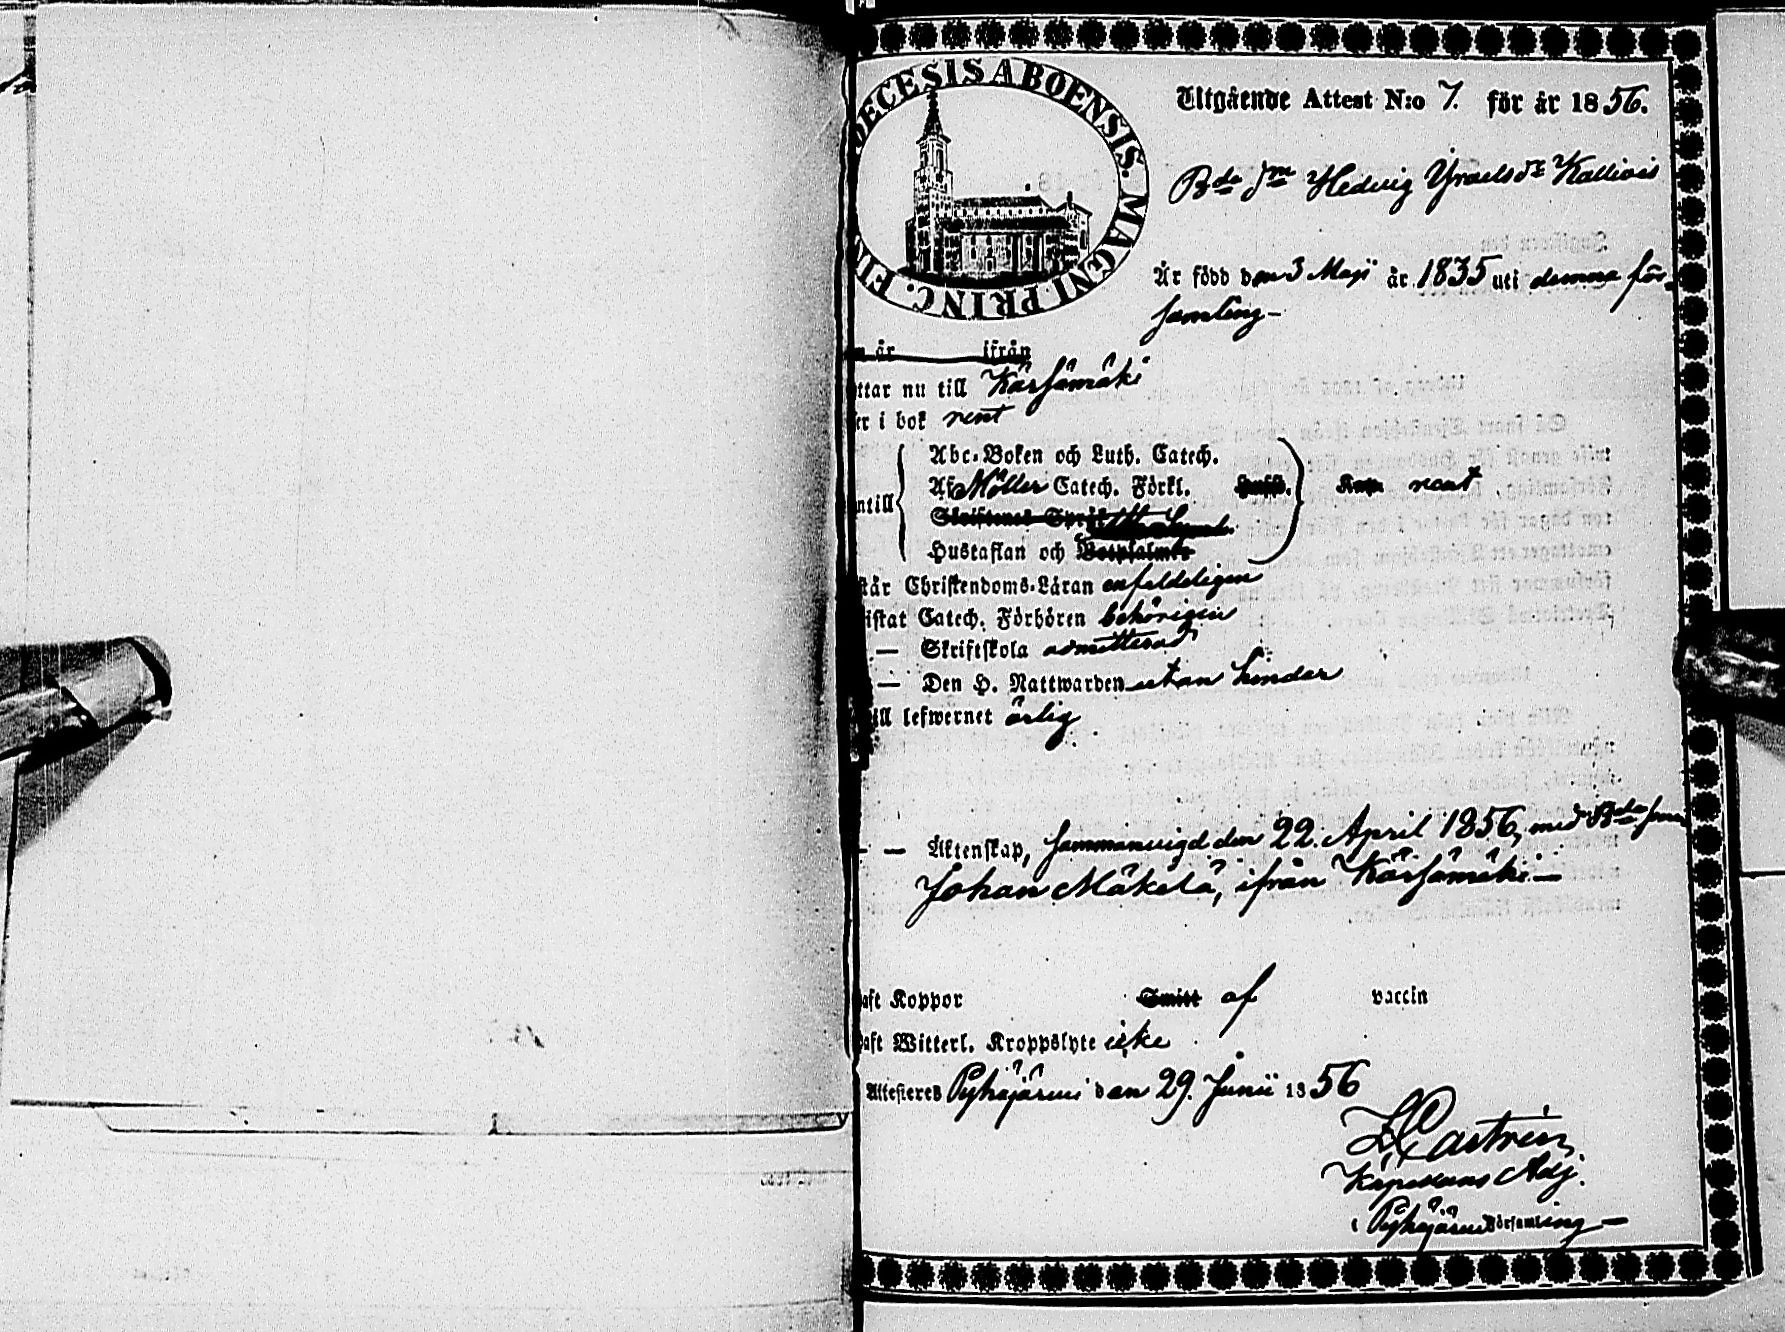 DECESIS ABOENSIS. MAGNI PRINC. FIN
Utgående Attest N:o 7. för år 1856.
Bde Jm Hedvig Yraels dr Kallivis
År född den 3 Maji år 1835 uti denna för-
samling-
n år ifrån
ttar nu till Kärsämäki
er i bok rent
Abc-Boken och Luth. Catech.
Af Möller Catech. Förkl. rent
ntill
Hustaflan och Botpsalmer
står Christendoms-Läran enfaldeligen
istat Catech. Förhören behörigen
— Skriftskola admitterad
— Den H. Nattwarden utan hinder
till lefwernet ärlig
— — Äktenskap, sammanvigd den 22. April 1856, med Bde son
Johan Mäkelä, ifrån Kärsämäki —
aft Koppor Smitt af vaccin
aft Witterl. Kroppslyte icke
Attesteres Pyhäjärvi den 29. Junii 1856
Castrén
Kapellans Adj.
i Pyhäjärvi Församling —